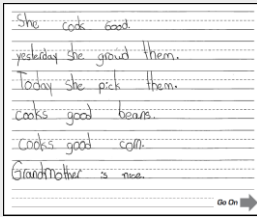 She cook good.
yesterday she grow'd them.
Today she pick them.
cooks good beans.
cooks good corn.
Grandmother is nice.
Go On